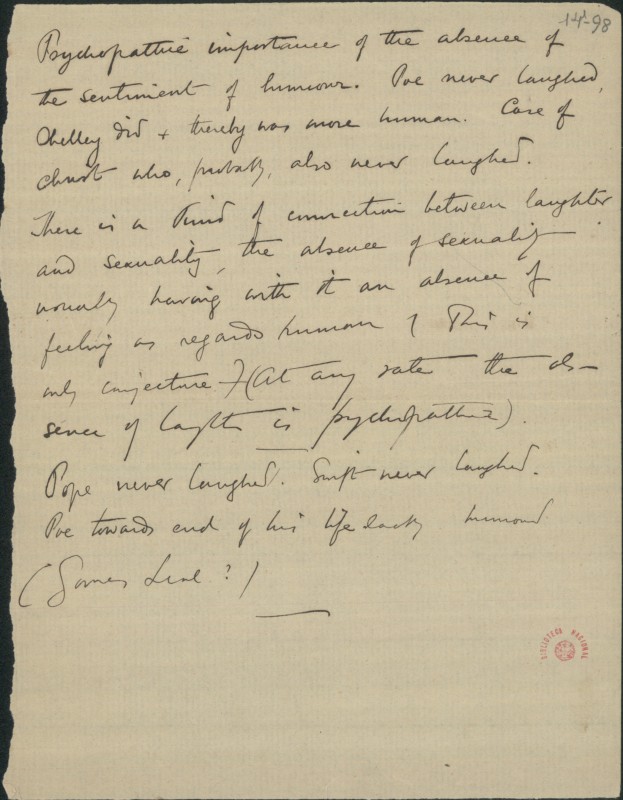 14¹-98
Psychopathic importance of the absence of
the sentiment of humour. Poe never laughed,
Shelley did & thereby was more human. Case of
Christ who, probably, also never laughed.
There is a kind of connection between laughter
and sexuality, the absence of sexuality
usually having with it an absence of
feeling as regards humour (This is
only conjecture.) (At any rate the ab-
sence of laughter is psychopathic).
Pope never laughed. Swift never laughed.
Poe towards end of his life lacks humour
(Gomes Leal?)
BIBLIOTECA NACIONAL